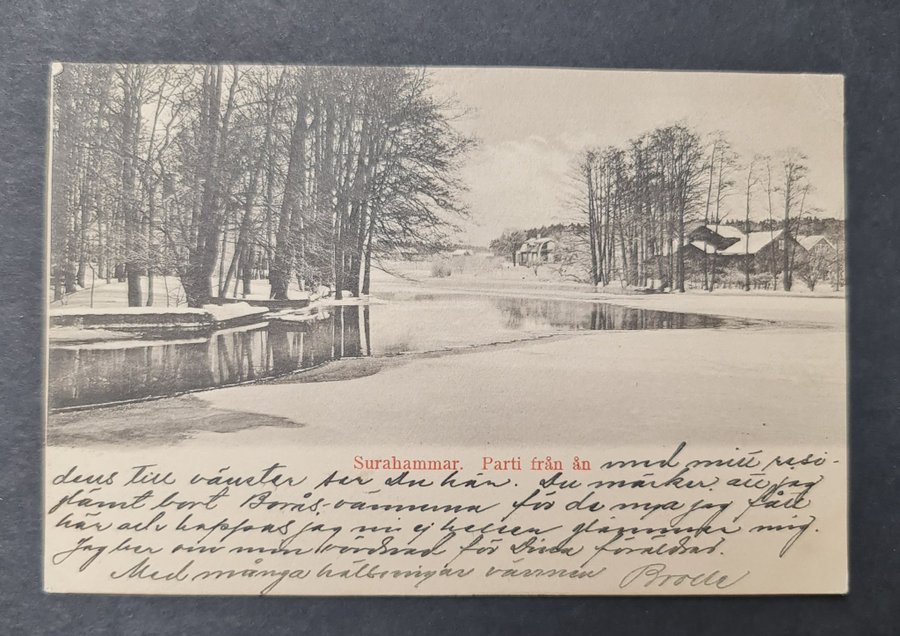 Surahammar. Parti från ån med mitt resi-
dens till vänster ser Du här. Du märker att jag
glömt bort Borås-vännerna för de nya jag fått
här och hoppas jag ni ej heller glömmer mig.
Jag ber om min vördnad för Dina föräldrar.
Med många hälsningar vännen